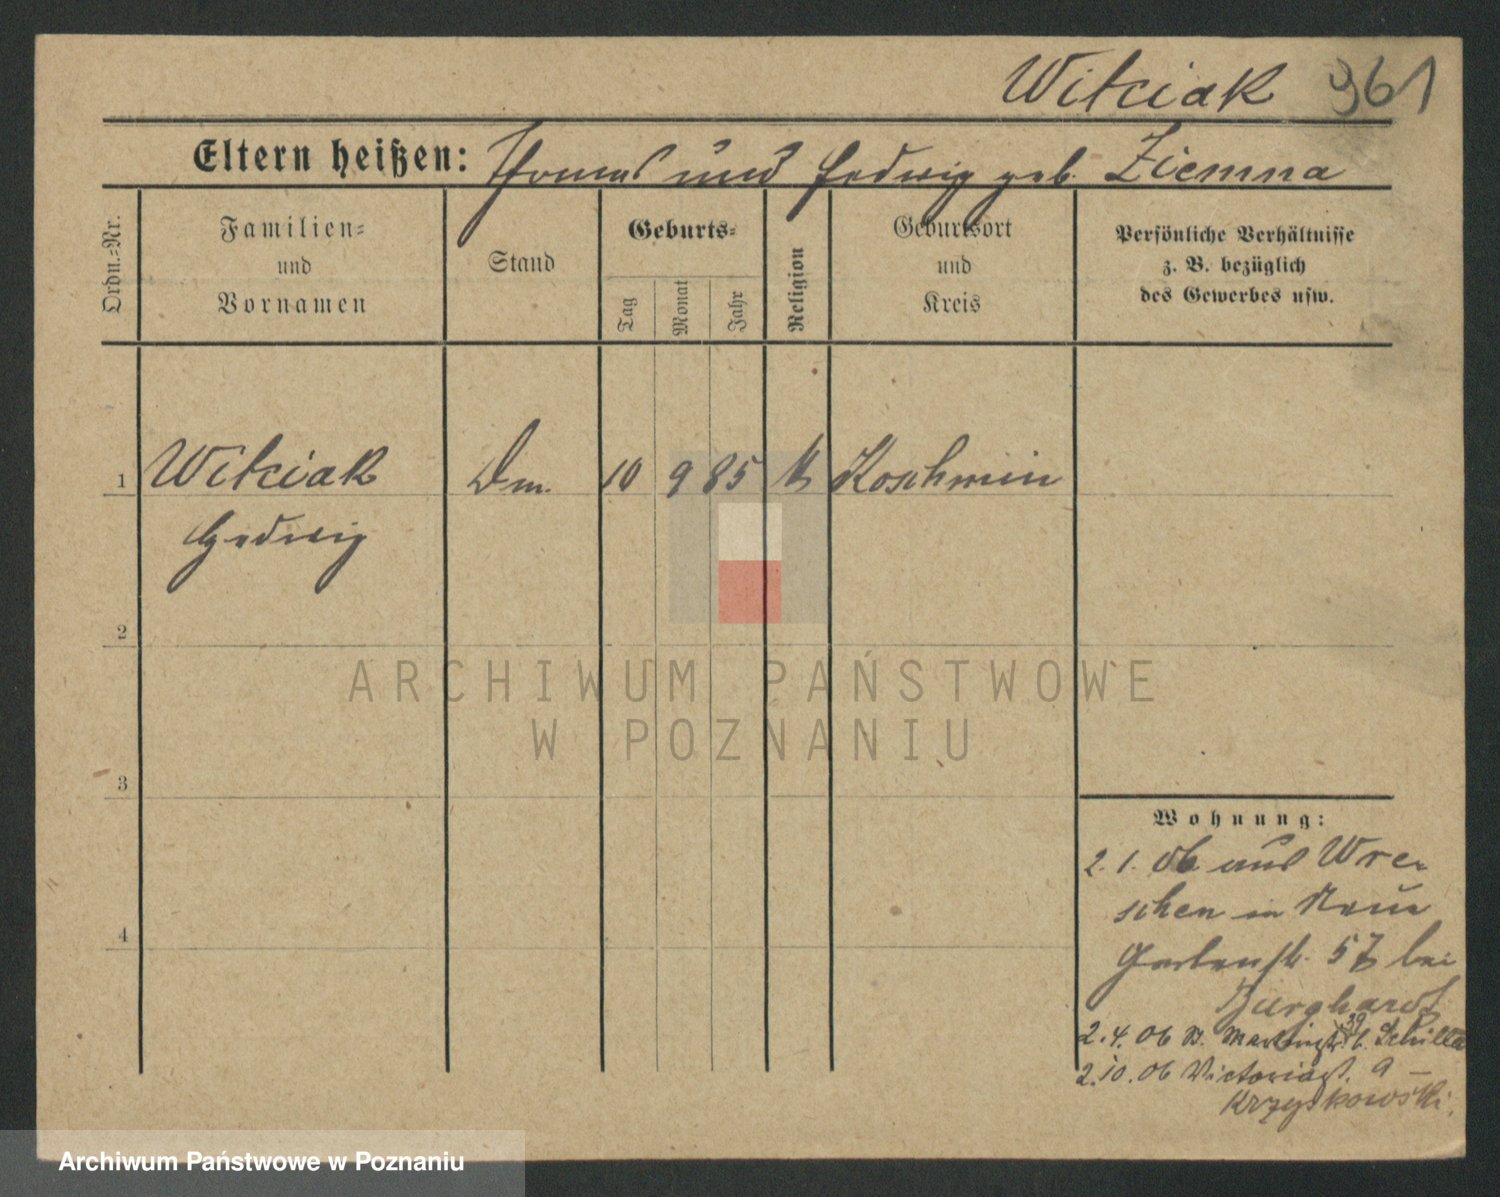 Witciak 961
Eltern heißen: Thomas und Hedwig geb. Ziemna
Ordn.=Nr.
Familien=
und
Vornamen
Stand
Geburts=
Tag
Monat
Jahr
Religion
Geburtsort
und
Kreis
Persönliche Verhältnisse
z. B. bezüglich
des Gewerbes usw.
1 Witciak Dm. 10 9 85 k Koschmin
Hedwig
2
ARCHIWUM PAŃSTWOWE
W POZNANIU
3
Wohnung:
2. 1. 06 aus Wre-
schen in Neue
4
Gartenstr. 57 bei
Burghardt
2. 4. 06 St. Martinstr. 39 b. Schilla
2. 10. 06 Victoriast. 9 –
Krzyskowski.
Archiwum Państwowe w Poznaniu